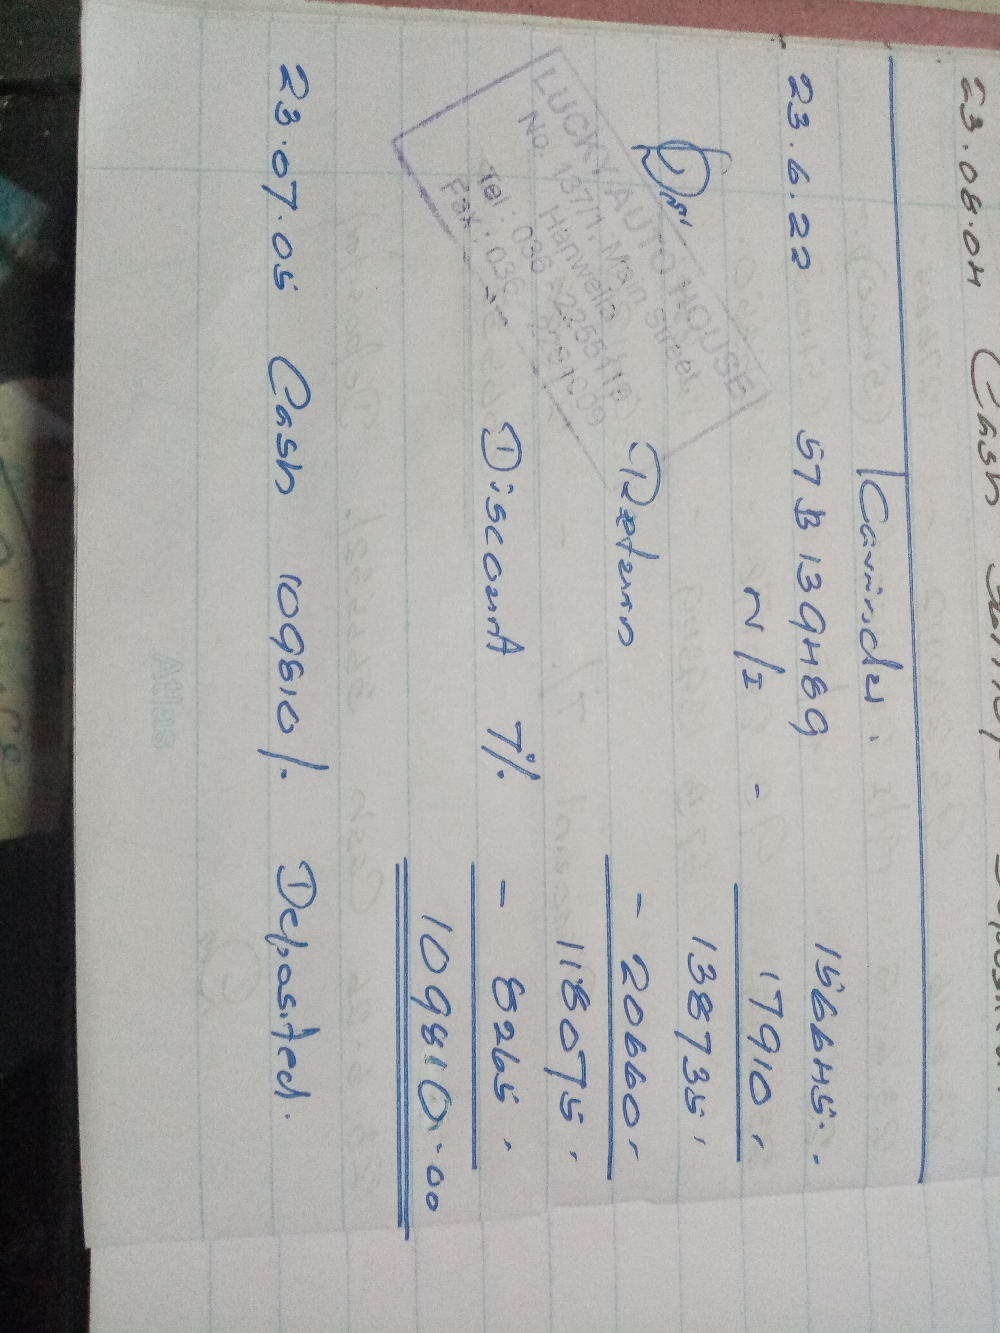 23.08.04 Cash
Cavindu.
23.6.22 57B139489 156645.
N/I - 17910.
138735.
Return - 20660.
118075.
Discount 7%. - 8265.
109810.00
23.07.05 Cash 109810/. Deposited.
LUCKY AUTO HOUSE
No. 137/1, Main Street,
Hanwella
Tel : 036 - 2255118
Fax : 036
Atlas